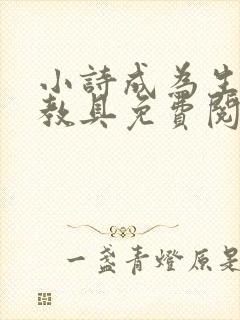 小詩成為生
教具免費閱
一盞青燈原是